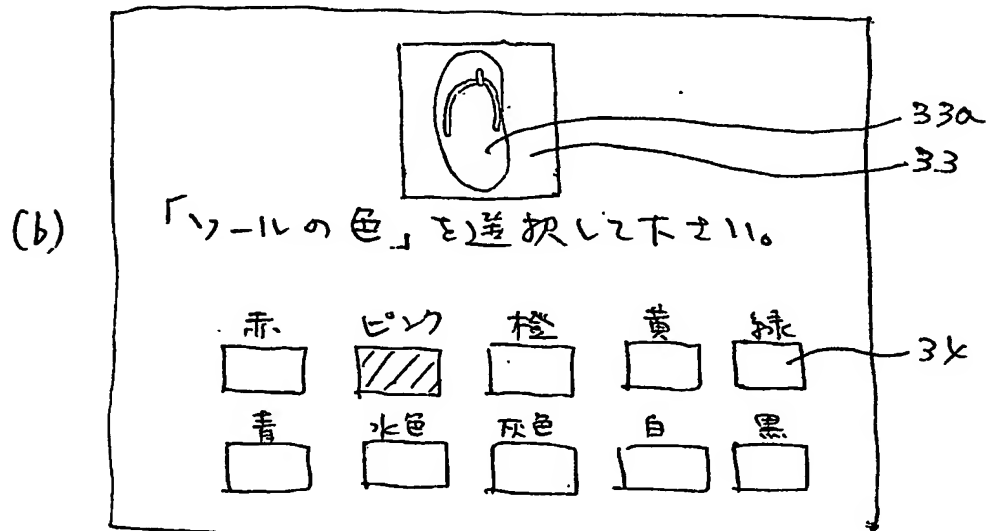 33a
33
(b)
「ソールの色」を選択して下さい。
赤 ピンク 橙 黄 緑
34
青 水色 灰色 白 黒